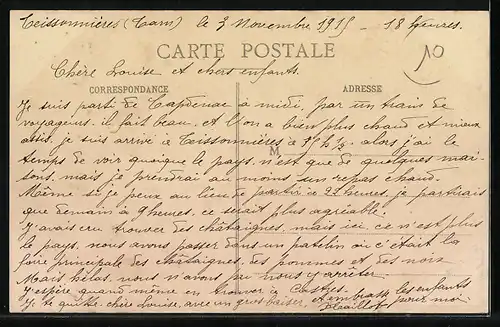 Teissonnières (Tarn) le 3 Novembre 1915 - 18 heures.
CARTE POSTALE
Chère Louise et chers enfants.
CORRESPONDANCE ADRESSE
Je suis parti de Capdenac à midi, par un train de
voyageurs. il fait beau, et l'on a bien plus chaud et mieux
assis, je suis arrivé à Teissonnières à 15h½. alors j'ai le
M
temps de voir quoique le pays, n'est que de quelques mai-
sons, mais je prendrai au moins un repas chaud.
Même si je peux au lieu de partir à 23 heures, je partirais
que demain à 9 heures, ce serait plus agréable.
J'avais cru trouver des châtaignes, mais ici, ce n'est plus
le pays, nous avons passer dans un patelin où c'était la
foire principale des châtaignes, des pommes et des noix
Mais hélas, nous n'avons pu nous y arrêter.
J'espère quand même en trouver à Castres.
Je te quitte chère Louise, avec un gros baiser, et embrasse les enfants
pour moi